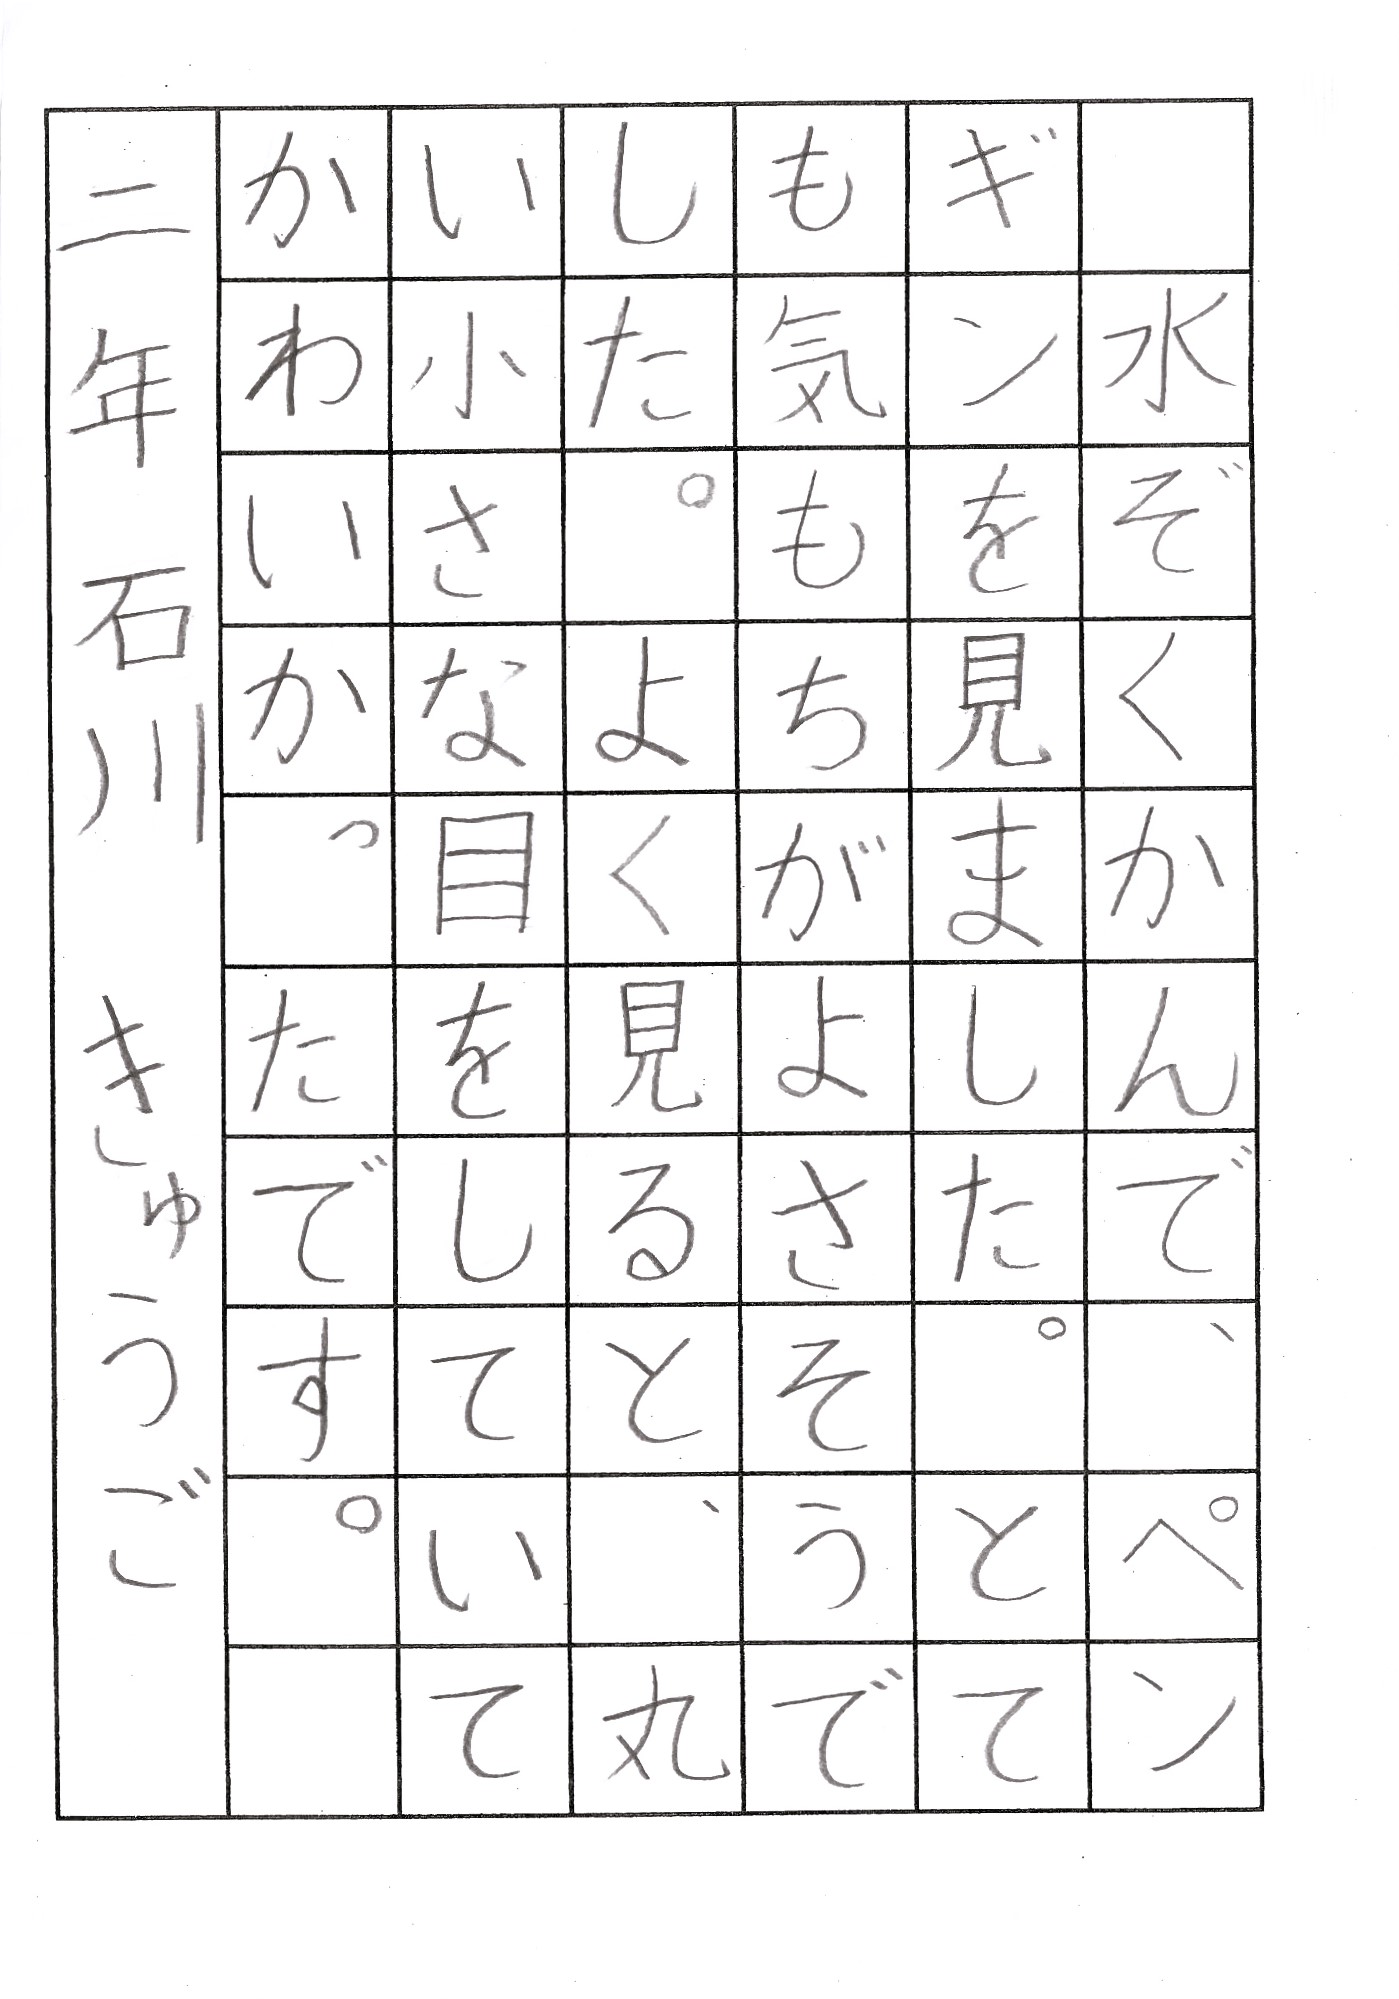 水ぞくかんで、ペン
ギンを見ました。とて
も気もちがよさそうで
した。よく見ると、丸
い小さな目をしていて
かわいかったです。
二年石川　きゅうご